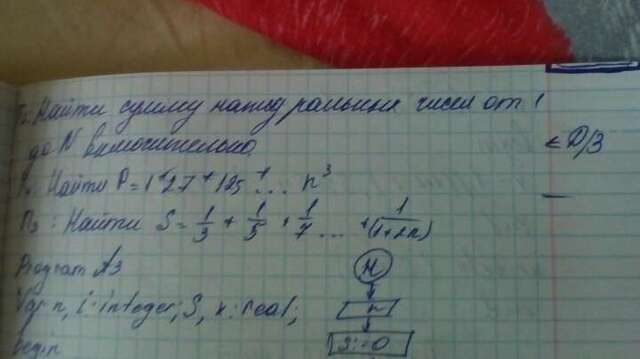 Найти сумму натуральных чисел от 1
до N включительно.
≤ Д/З
Найти P = 1 + 27 + 125 + ... n³
П₃: Найти S = 1/3 + 1/5 + 1/7 ... + 1/(1+2n)
Program A3
Var n, i: integer; S, x: real;
begin
Н
n
S:=0